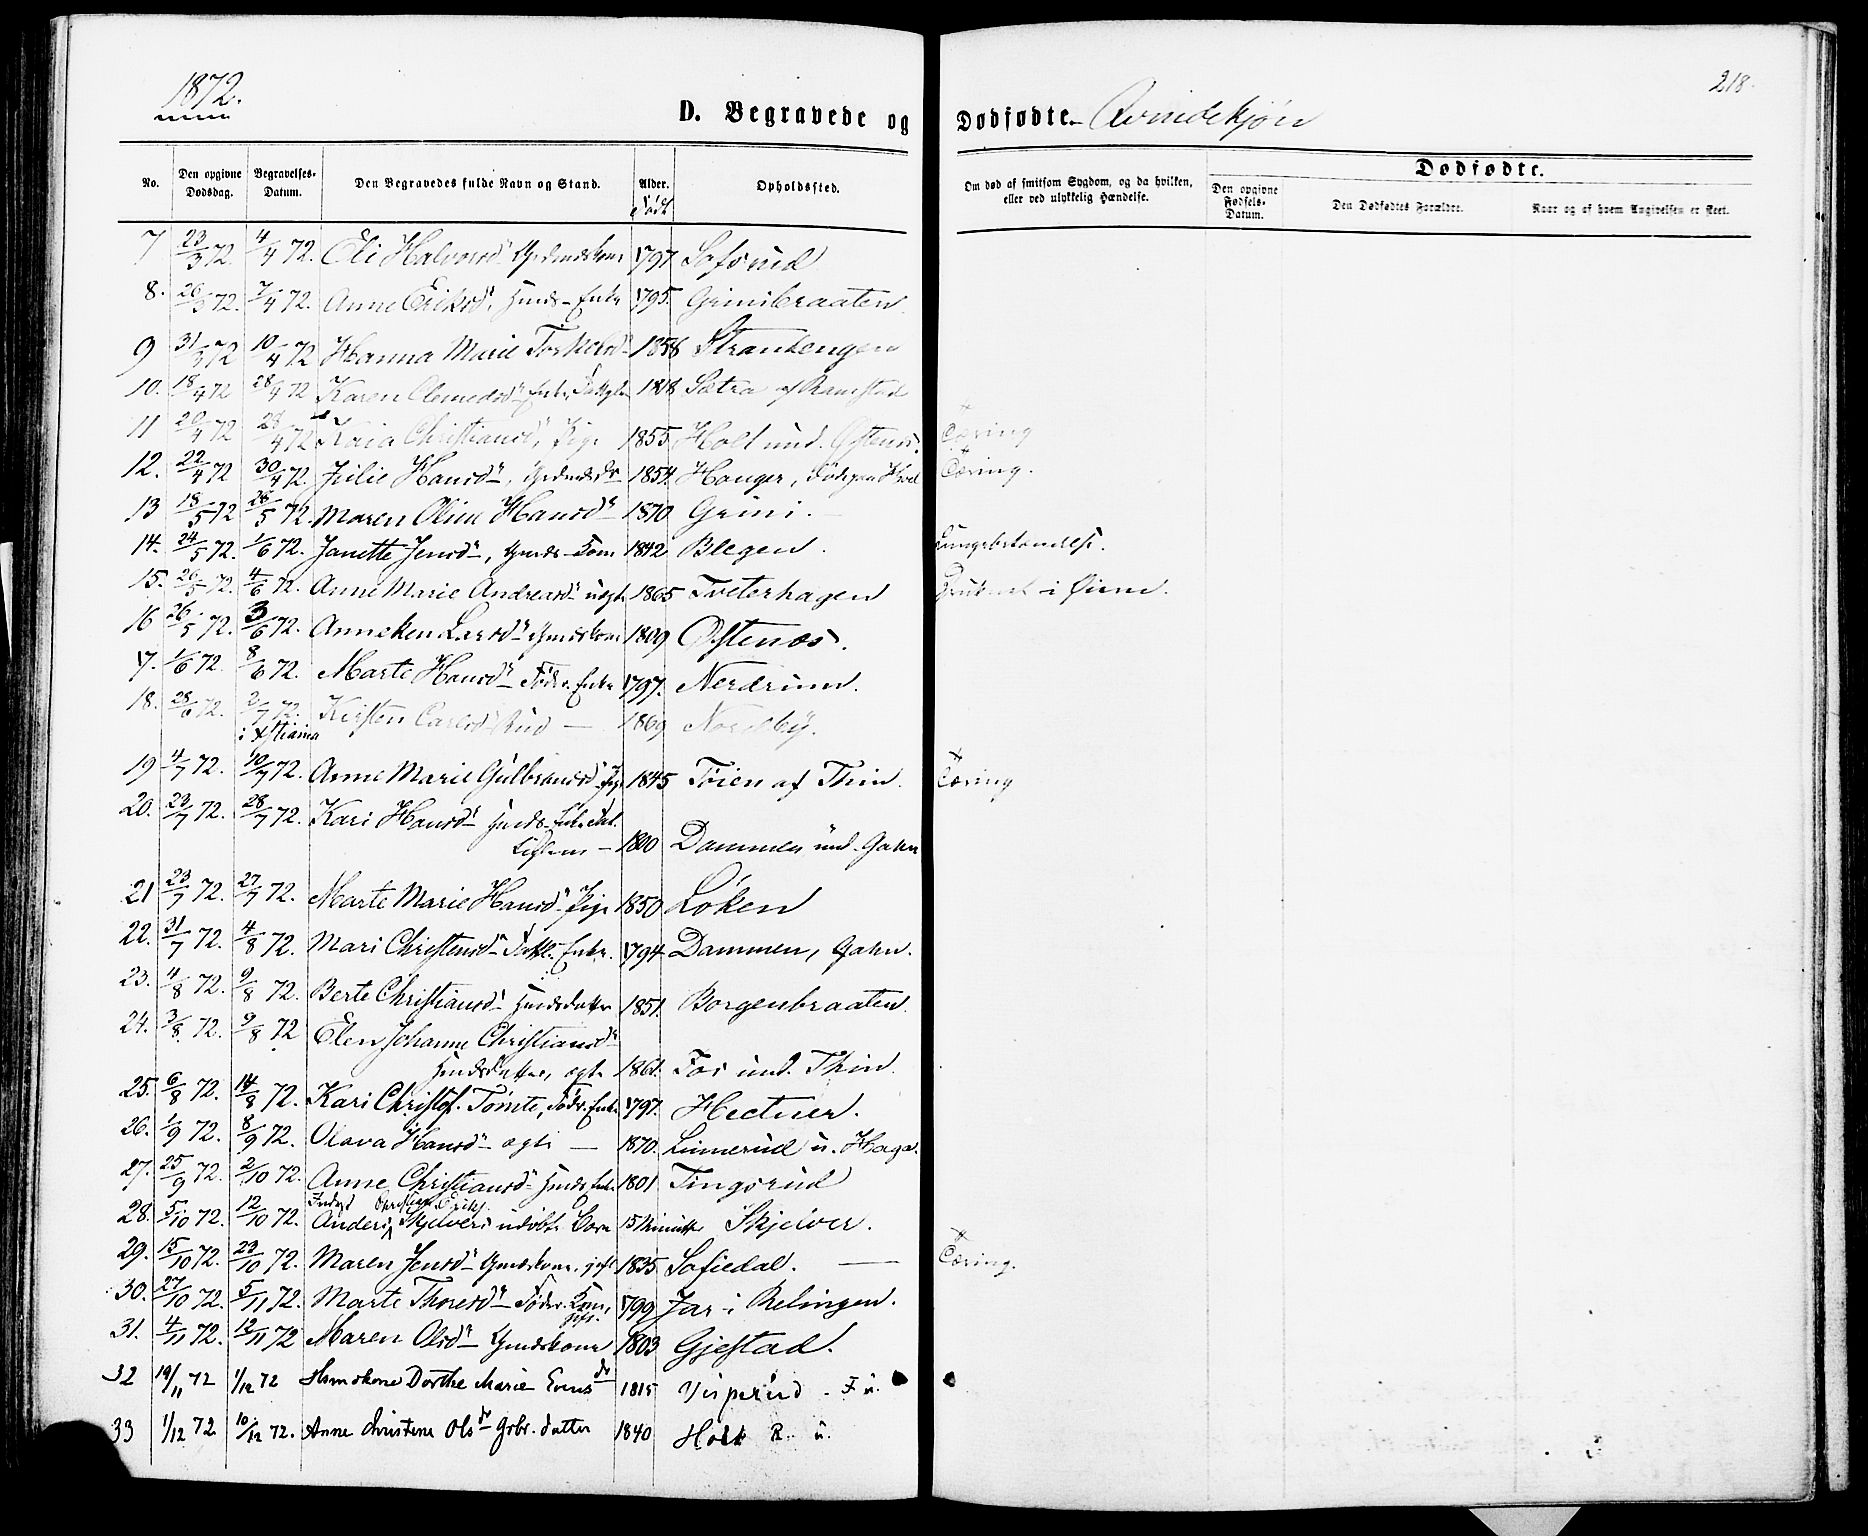 1872.
218.
D. Begravede og Dødfødte. Qvindekjøn
No. Den opgivne Dødsdag. Begravelses-Datum. Den Begravedes fulde Navn og Stand. Alder. Født Opholdssted. Om død af smitsom Sygdom, og da hvilken, eller ved ulykkelig Hændelse. Dødfødte. Den opgivne Fødsels-Datum. Den Dødfødtes Forældre. Naar og af hvem Angivelsen er skeet.
7 23/3 72. 4/4 72. Eli Halvorsd. Grdmdskone 1797 Sofsrud
8. 26/3 72. 7/4 72. Anne Eriksd., Huusm-Enke 1795. Grinibraaten
9 31/3 72 10/4 72 Hanna Marie Torkelsd. 1858 Strandengen
10. 18/4 72 28/4 72 Karen Clemedsd. Enke, 1818 Sætra af Ramstad
11 20/4 72 28/4 72 Kaia Christiansd., Pige 1855 Holt und. Østenes. Tæring
12. 22/4 72 30/4 72. Julie Hansd., Grdmdsdr 1854. Hauger, Tæring.
13 18/5 72 26/5 72. Maren Oline Hansd. 1870 Grini.
14. 24/5 72. 1/6 72. Janette Jensd., Kone 1842 Blegen. Lungebetændelse.
15. 26/5 72. 4/6 72. Anne Marie Andreasd. uægte 1865 Tveterhagen i Øiene.
16 26/5 72. 3/6 72. Anneken Larsd. Gmdskone 1809 Østenes.
17. 1/6 72. 8/6 72. Marte Hansd. Føder. Enke 1797. Nerdrum.
18. 28/6 72. 2/7 72. Kirsten Carlsd. Rud — 1869 Nordby.
i Xstiania
19 4/7 72. 10/7 72. Anne Marie Gulbrandsd. Pige 1845 Tøien af Thin. Tæring
20. 23/7 72. 28/7 72. Kari Hansd. Huusm-Enke
— 1800 Dammen und. Gahn
21 23/7 72. 27/7 72. Marte Marie Hansd. Pige 1850 Løken
22. 31/7 72. 4/8 72. Mari Christensd. Enke. 1794 Dammen, Gahn.
23. 4/8 72. 9/8 72. Berte Christiansd. Husmdsdatter 1851. Borgenbraaten.
24. 3/8 72. 9/8 72 Elen Johanne Christiansd.
Husmdsdatter, ægte 1861. Foss und. Thin.
25. 6/8 72. 14/8 72. Kari Christof. Tømte, Føder. Enke 1797. Hectner.
26. 1/9 72. 8/9 72. Olava Hansd. ægte — 1870. Linnerud u. Haga.
27. 25/9 72. 2/10 72. Anne Christiansd. Enke 1801 Tingsrud
28. 5/10 72. 12/10 72. Anders Skjelvers udøbt Barn 15 Minutter Skjelver.
29. 15/10 72. 23/10 72. Maren Jensd. Gmdskone, gift 1835 Sofiedal. — Tæring.
30. 27/10 72. 5/11 72. Marte Thoresd. Føder. Kone, gift. 1799 Jar i Relingen.
31. 4/11 72. 12/11 72 Maren Olsd. Gmdskone 1803 Gjestad.
32 19/11 72 1/12 72 Hsmdkone Dorthe Marie Evensdr 1815 Visperud. F u.
33 1/12 72 10/12 72. Anne Christine Olsdr Grbr. datter 1840 Holt R. u.